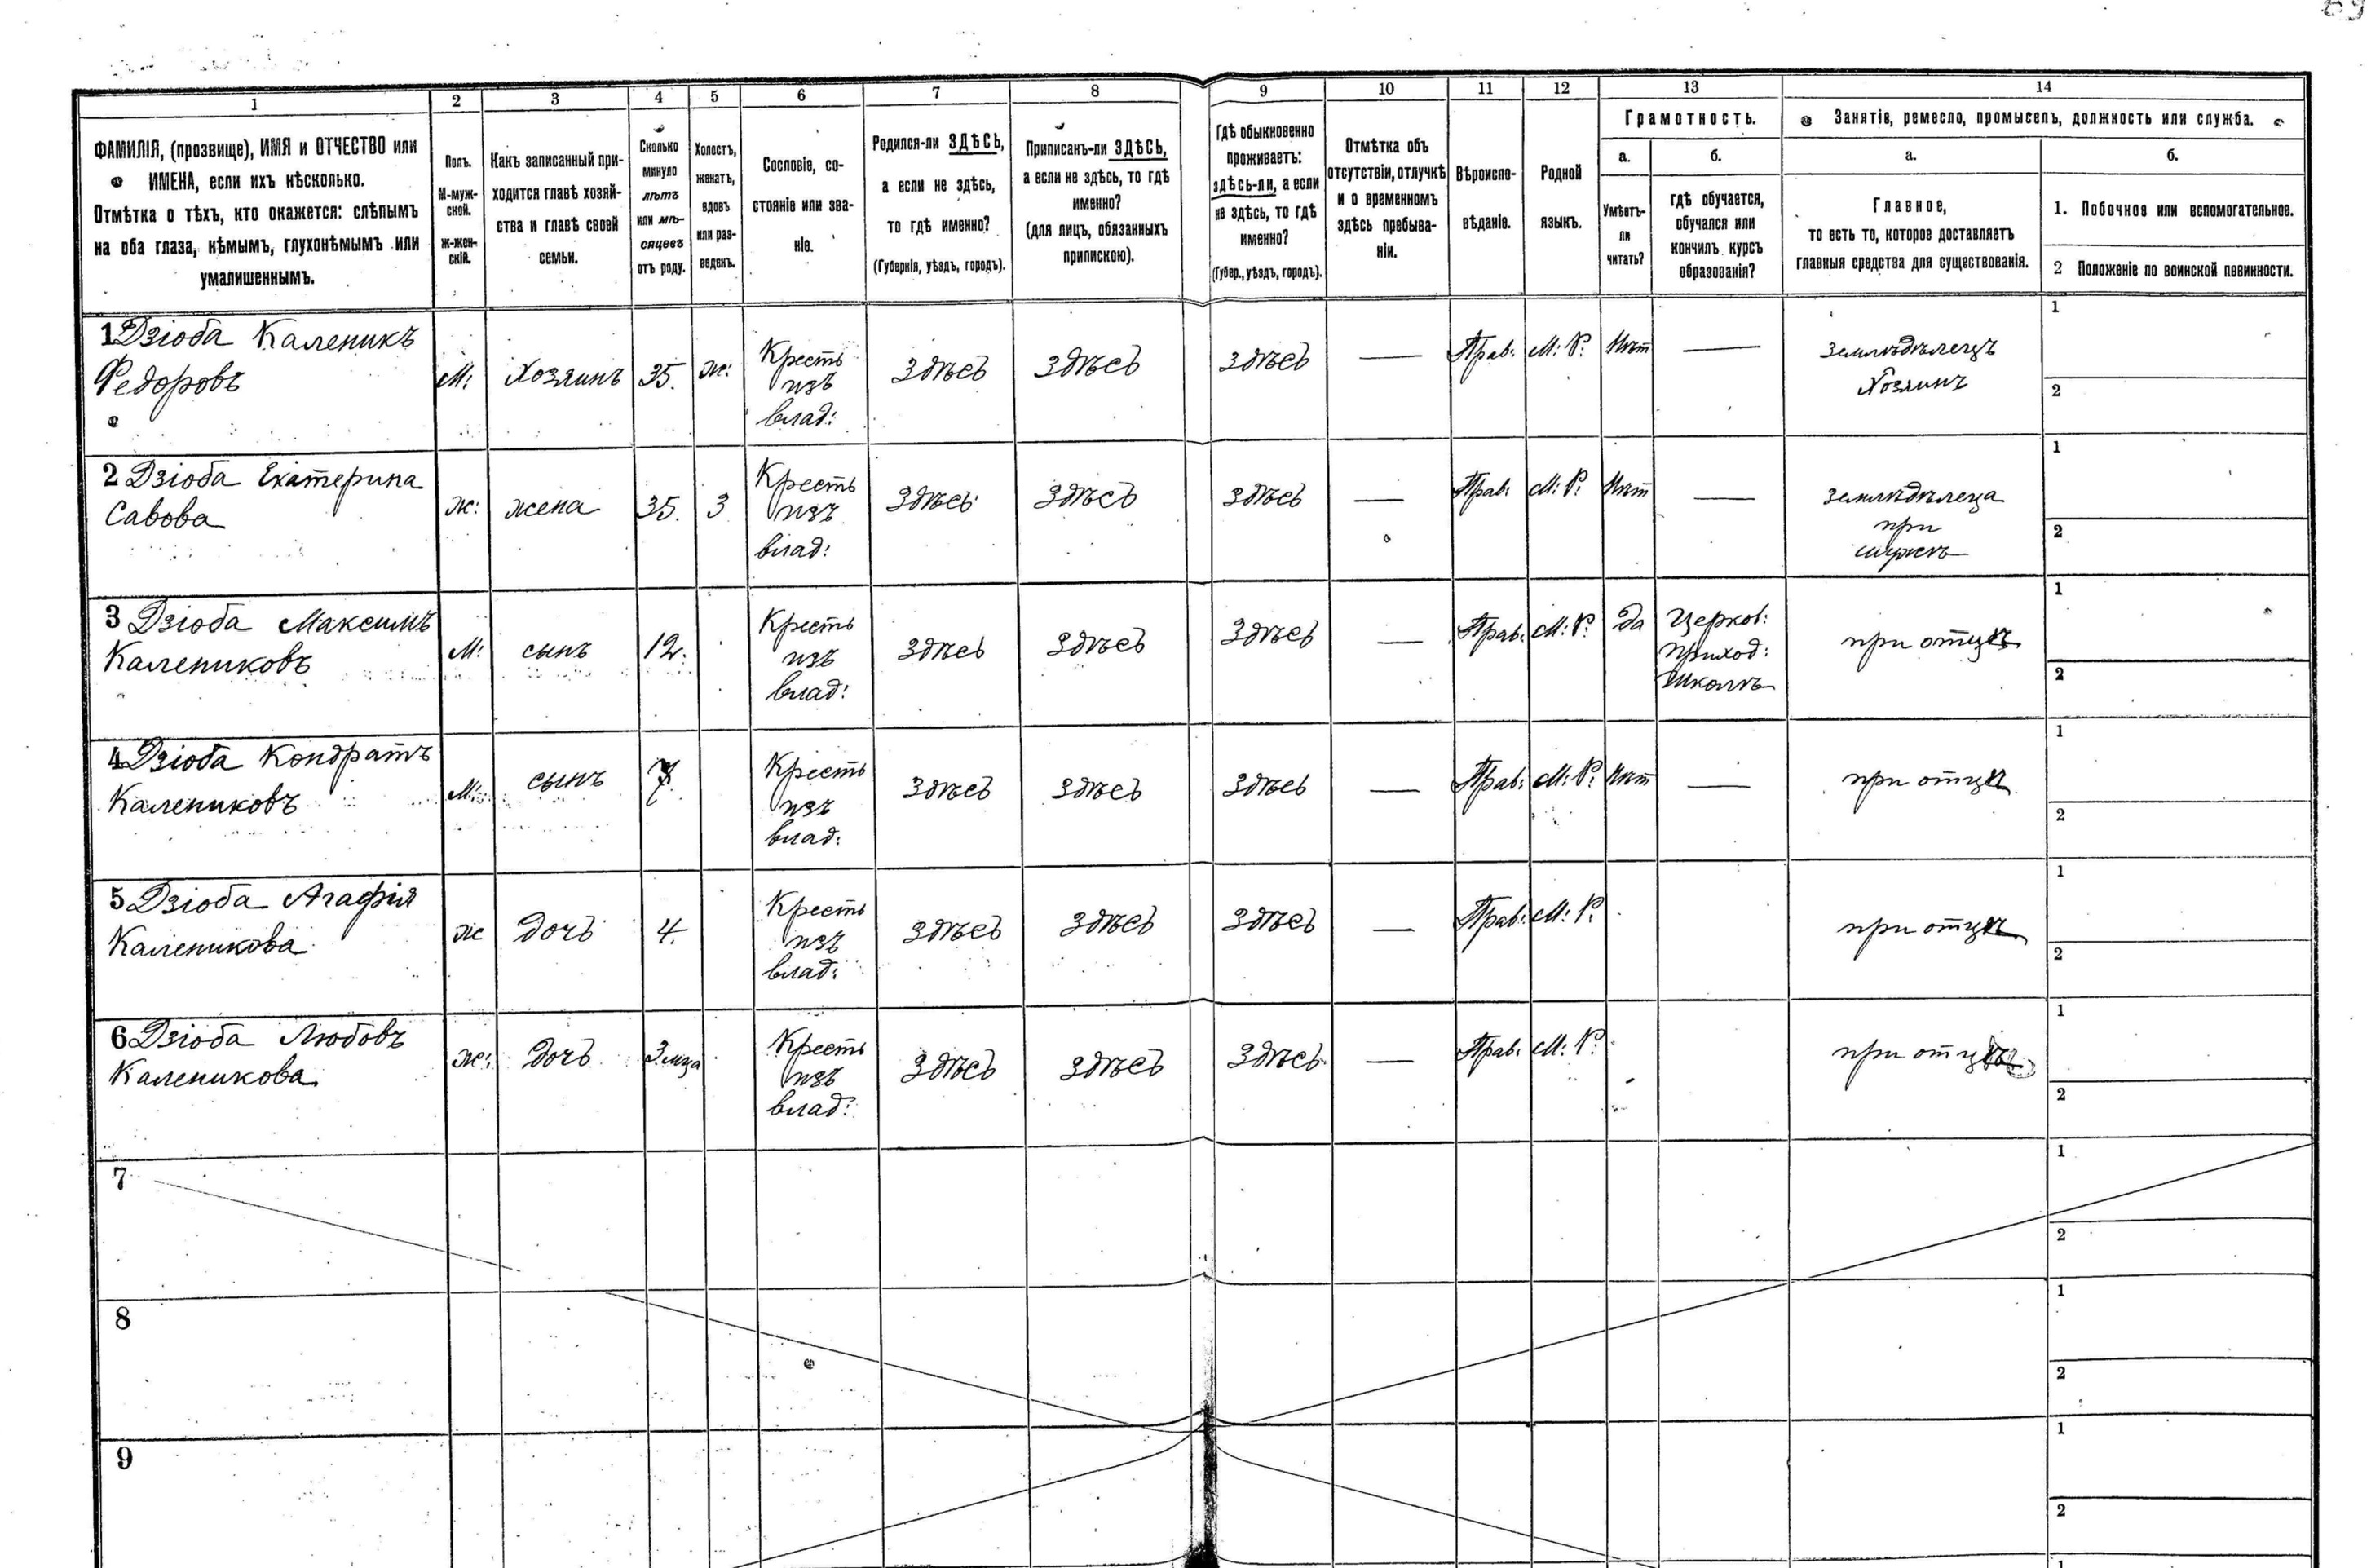 1 2 3 4 5 6 7 8 9 10 11 12 13 14
ФАМИЛІЯ, (прозвище), ИМЯ и ОТЧЕСТВО или
ИМЕНА, если ихъ нѣсколько.
Отмѣтка о тѣхъ, кто окажется: слѣпымъ
на оба глаза, нѣмымъ, глухонѣмымъ или
умалишеннымъ.
Полъ.
М-муж-
ской.
Ж-жен-
скій.
Какъ записанный при-
ходится главѣ хозяй-
ства и главѣ своей
семьи.
Сколько
минуло
лѣтъ
или мѣ-
сяцевъ
отъ роду.
Холостъ,
женатъ,
вдовъ
или раз-
веденъ.
Сословіе, со-
стояніе или зва-
ніе.
Родился-ли ЗДѢСЬ,
а если не здѣсь,
то гдѣ именно?
(Губернія, уѣздъ, городъ).
Приписанъ-ли ЗДѢСЬ,
а если не здѣсь, то гдѣ
именно?
(для лицъ, обязанныхъ
припискою).
Гдѣ обыкновенно
проживаетъ:
здѣсь-ли, а если
не здѣсь, то гдѣ
именно?
(Губер., уѣздъ, городъ).
Отмѣтка объ
отсутствіи, отлучкѣ
и о временномъ
здѣсь пребыва-
ніи.
Вѣроиспо-
вѣданіе.
Родной
языкъ.
Грамотность.
а.
Умѣетъ-
ли
читать?
б.
гдѣ обучается,
обучался или
кончилъ курсъ
образованія?
Занятіе, ремесло, промыселъ, должность или служба.
а.
Главное,
то есть то, которое доставляетъ
главныя средства для существованія.
б.
1. Побочное или вспомогательное.
2 Положеніе по воинской повинности.
1 Дзюба Каленикъ
Федоровъ
М:
Хозяинъ
35.
ж:
Кресть
изъ
влад:
здѣсь
здѣсь
здѣсь
—
Прав:
М: Р:
Нѣт
—
земледѣлецъ
Хозяинъ
1
2
2 Дзюба Екатерина
Савова
ж:
жена
35.
З
Кресть
изъ
влад:
здѣсь
здѣсь
здѣсь
—
Прав:
М: Р:
Нѣт
—
земледѣлеца
при
мужѣ
1
2
3 Дзюба Максимъ
Калениковъ
М:
сынъ
12.
Кресть
изъ
влад:
здѣсь
здѣсь
здѣсь
—
Прав:
М: Р:
Да
Церков:
приход:
школѣ
при отцѣ
1
2
4 Дзюба Кондратъ
Калениковъ
М:
сынъ
7
Кресть
изъ
влад:
здѣсь
здѣсь
здѣсь
—
Прав:
М: Р:
Нѣт
—
при отцѣ
1
2
5 Дзюба Агафія
Каленикова
ж
дочь
4.
Кресть
изъ
влад:
здѣсь
здѣсь
здѣсь
—
Прав:
М: Р:
при отцѣ
1
2
6 Дзюба Любовъ
Каленикова
ж:
дочь
3 мца
Кресть
изъ
влад:
здѣсь
здѣсь
здѣсь
—
Прав:
М: Р:
при отцѣ
1
2
7
1
2
8
1
2
9
1
2
1